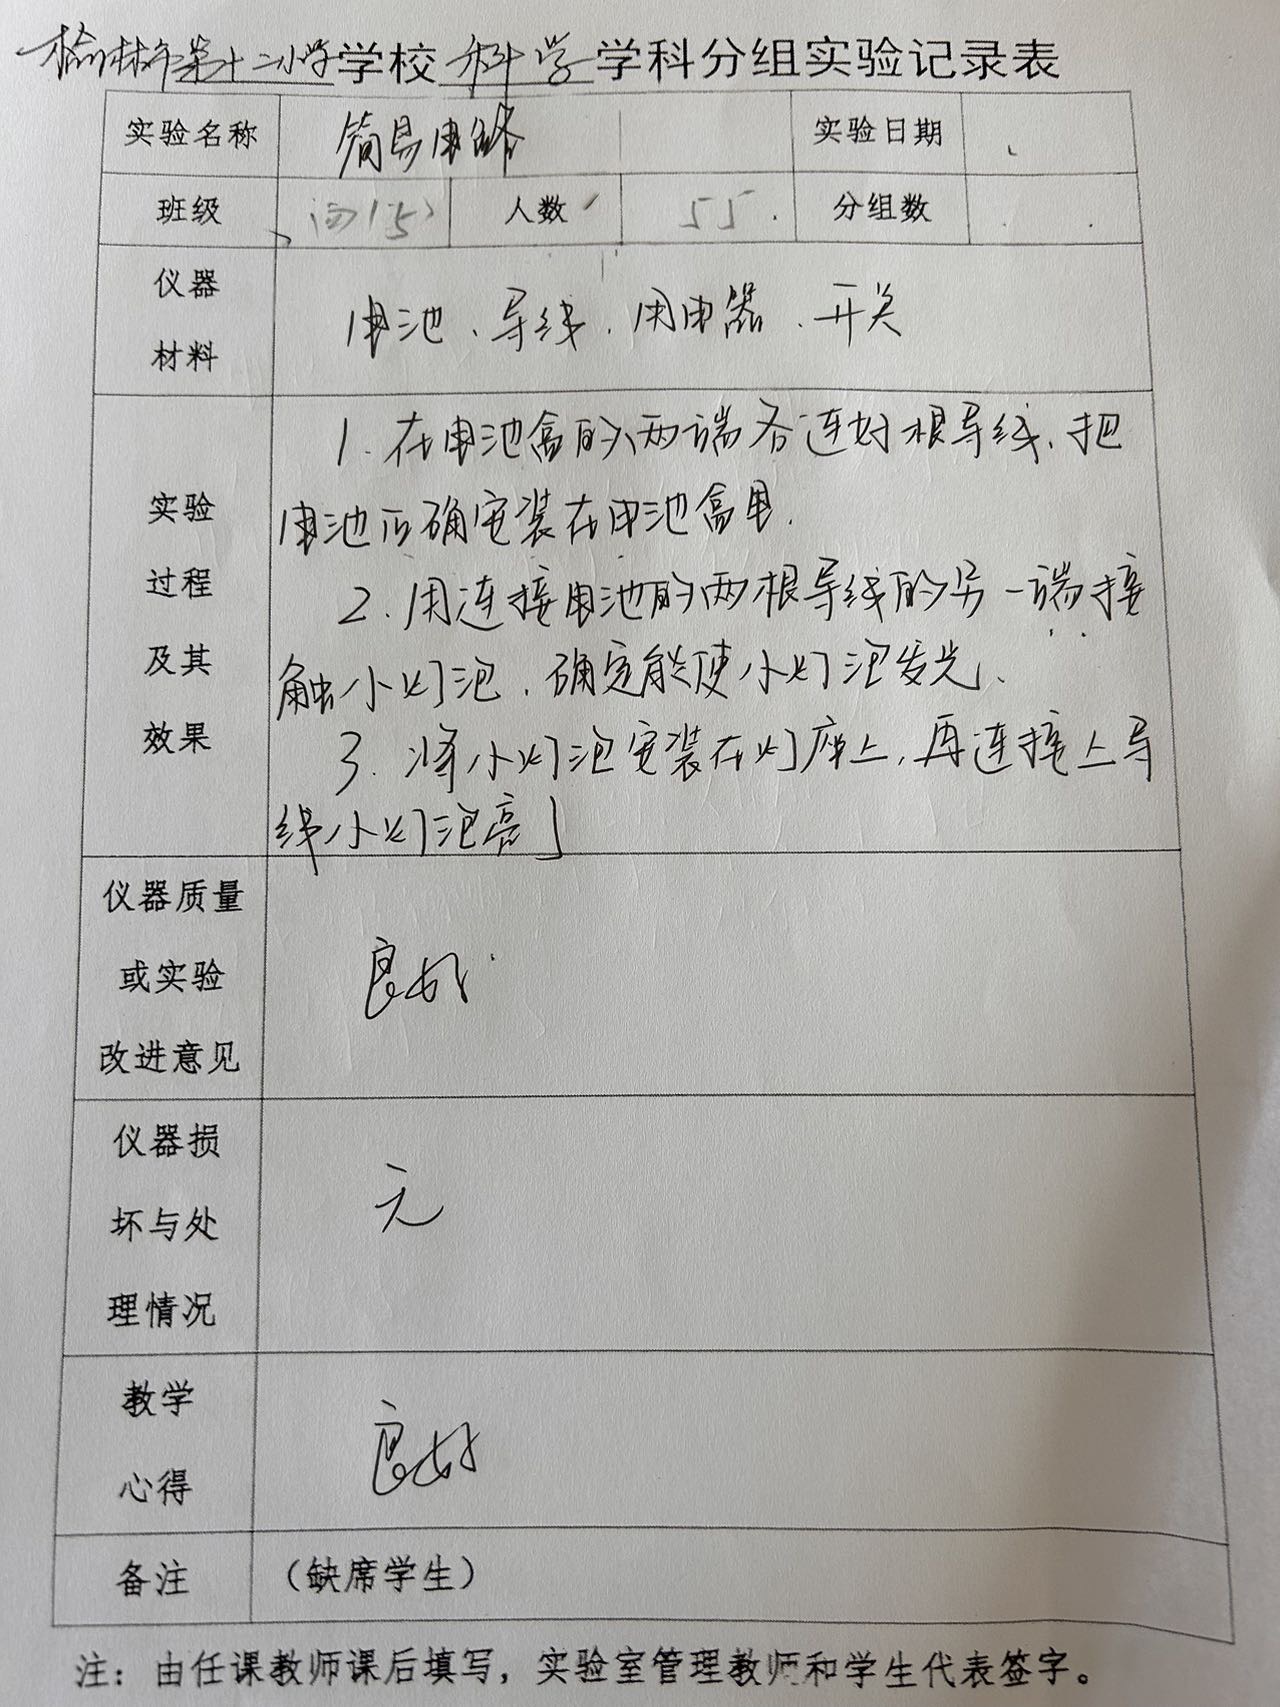 榆林市第十二小学学校 科学 学科分组实验记录表
实验名称 简易电路 实验日期
班级 四(5) 人数 55 分组数
仪器
材料
电池、导线、用电器、开关
实验
过程
及其
效果
1.在电池盒的两端各连好根导线,把
电池正确安装在电池盒里.
2.用连接电池的两根导线的另一端接
触小灯泡,确定能使小灯泡发光.
3.将小灯泡安装在灯座上,再连接上导
线小灯泡亮了
仪器质量
或实验
改进意见
良好
仪器损
坏与处
理情况
无
教学
心得
良好
备注 (缺席学生)
注:由任课教师课后填写,实验室管理教师和学生代表签字。